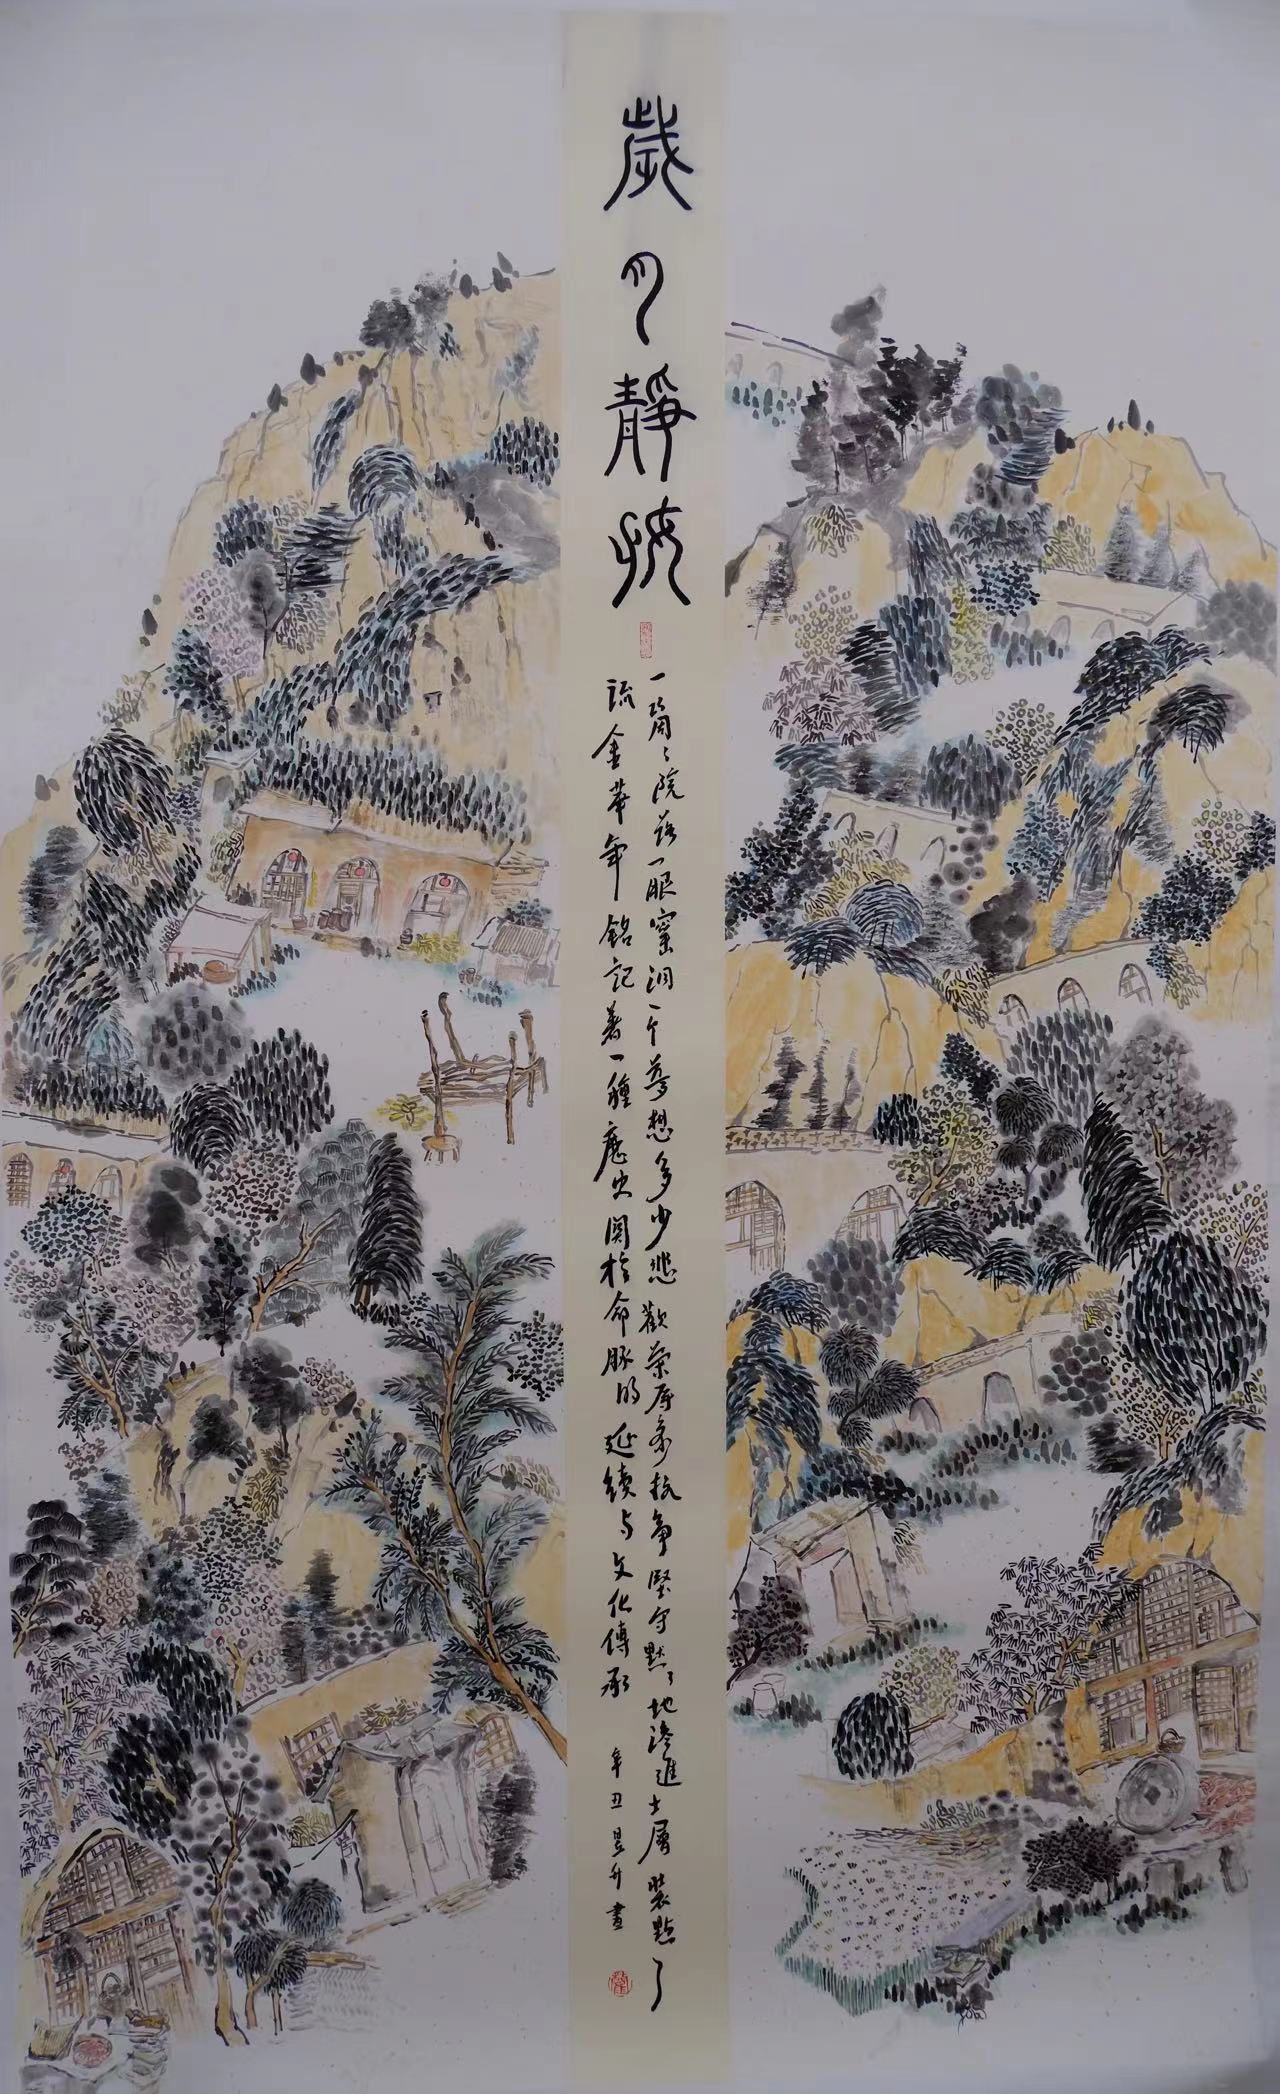 歲月靜好
一箇々院落一眼窰洞一个夢想多少悲歡榮辱抗爭堅守默々地滲進土層裝點了
流金華年銘記著一種歷史関於命脉的延續与文化傳承
辛丑昱升畫